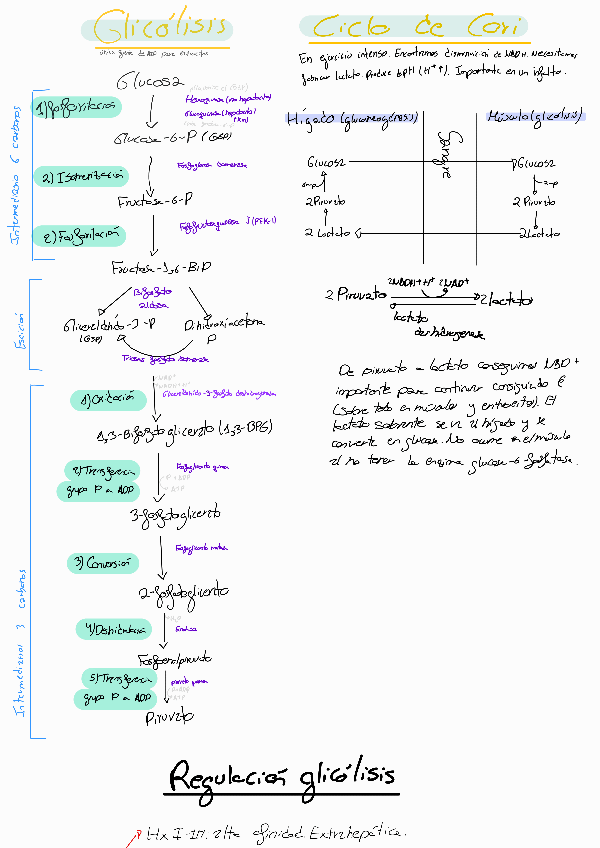 Glicólisis
única fuente de ATP para eritrocitos
Glucosa
Hexoquinasa (no hepatocito)
Glucoquinasa (hepatocito)
1) Fosforilación
Glucosa-6-P (G6P)
2) Isomerización
Fosfoglucosa isomerasa
Fructosa-6-P
2) Fosforilación
Fosfofructoquinasa 1 (PFK-1)
Fructosa-1,6-BiP
Intermediario 6 carbonos
Bifosfato
aldolasa
Gliceraldehído-3-P
(G3P)
Dihidroxiacetona
P
Triosa fosfato isomerasa
Escisión
1) Oxidación
Gliceraldehído-3-fosfato deshidrogenasa
1,3-Bifosfoglicerato (1,3-BPG)
2) Transferencia
grupo P a ADP
Fosfoglicerato quinasa
3-fosfoglicerato
3) Conversión
Fosfoglicerato mutasa
2-fosfoglicerato
4) Deshidratación
Enolasa
Fosfoenolpiruvato
5) Transferencia
grupo P a ADP
piruvato quinasa
Piruvato
Intermediarios 3 carbonos
Ciclo de Cori
En ejercicio intenso. Encontramos disminución de NADH. Necesitamos
fabricar lactato. Produce ↓pH (H+↑). Importante en un infarto.
Hígado (gluconeogénesis)
Sangre
Músculo (glicólisis)
Glucosa
Glucosa
2 Piruvato
2 Piruvato
2 Lactato
2 Lactato
2NADH+H+ 2NAD+
2 Piruvato
2 lactato
lactato
deshidrogenasa
De piruvato a lactato conseguimos NAD+
importante para continuar consiguiendo E
(sobre todo en músculo y eritrocito). El
lactato sobrante se va al hígado y se
convierte en glucosa. No ocurre en el músculo
al no tener la enzima glucosa-6-fosfatasa.
Regulación glicólisis
Hx I-III. alta afinidad. Extrahepática.